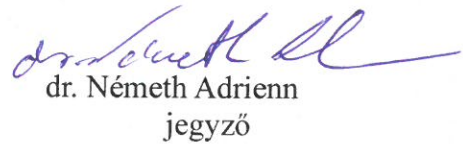 dr. Németh Adrienn
jegyző